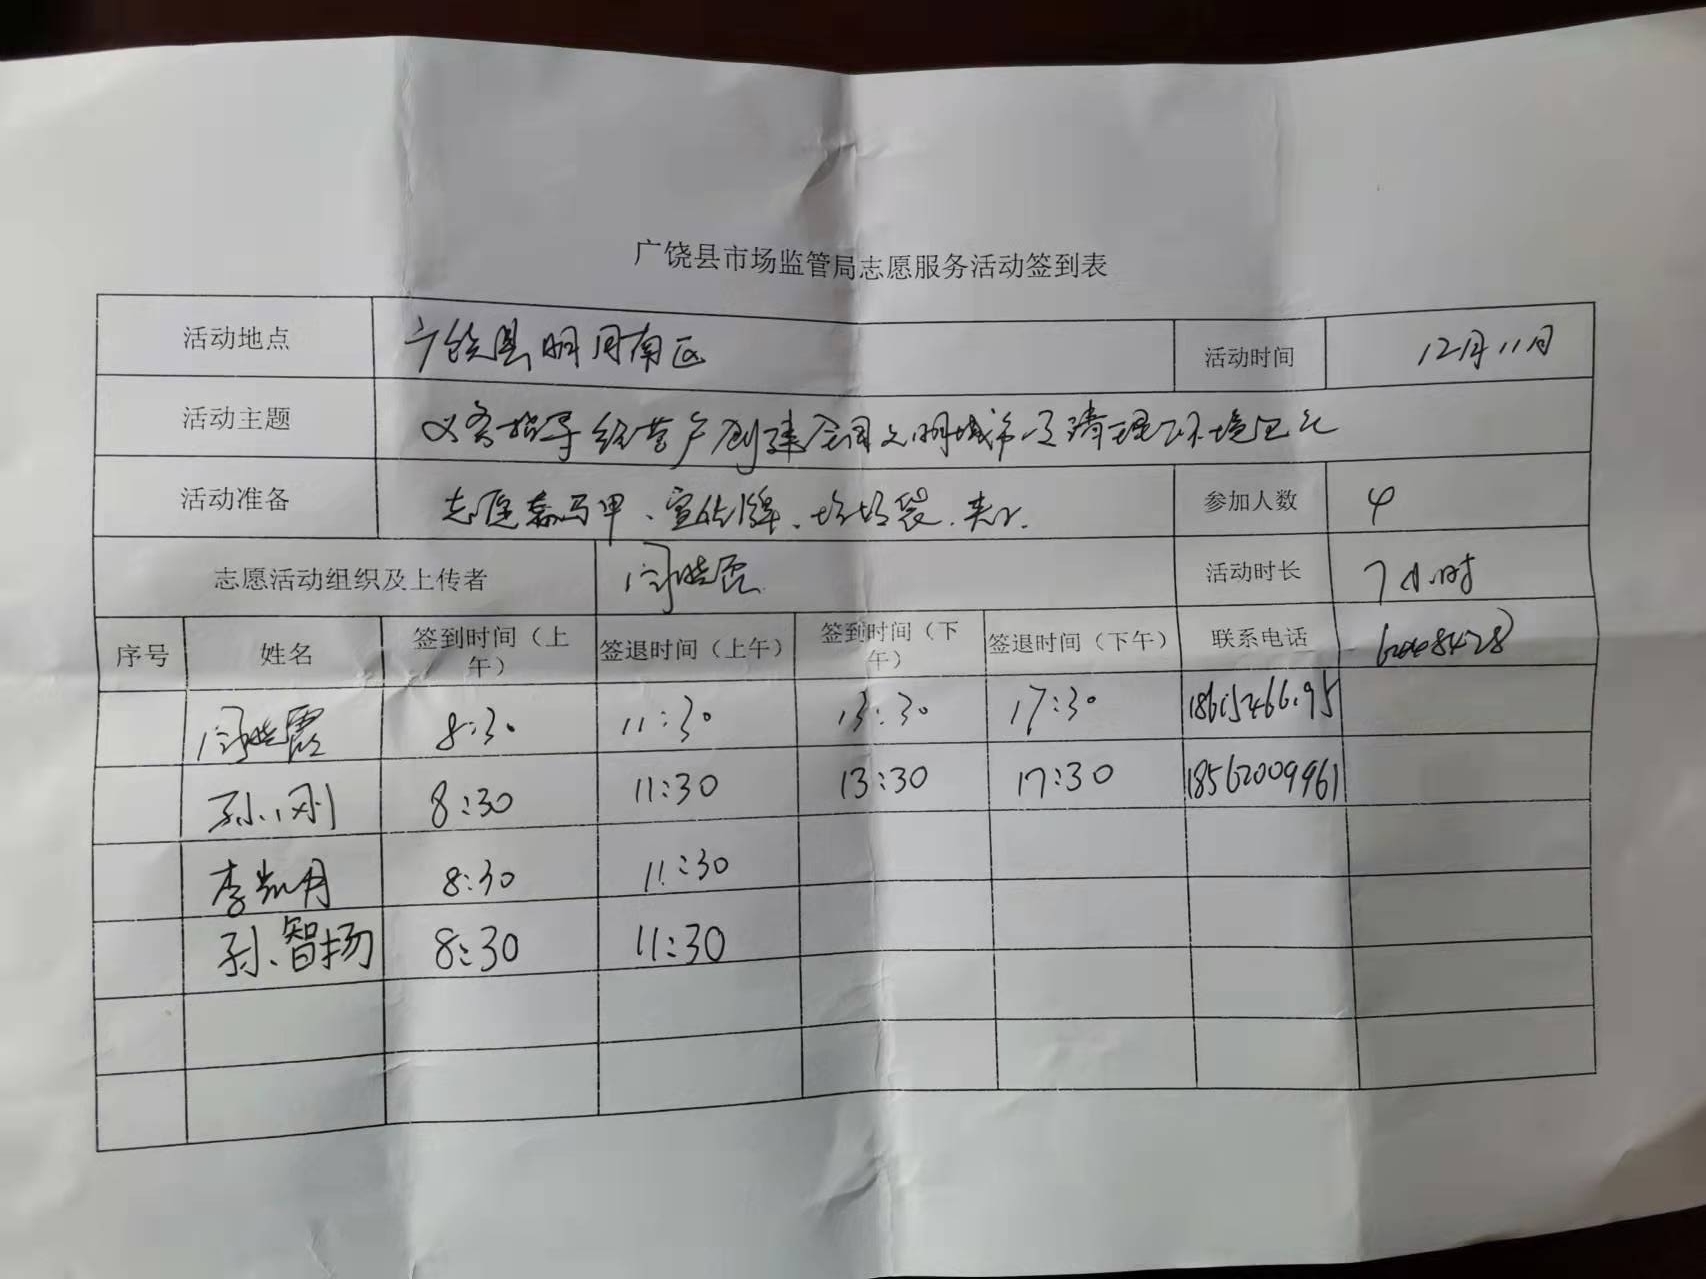 广饶县市场监管局志愿服务活动签到表
活动地点 广饶县明月南区 活动时间 12月11日
活动主题 义务指导经营户创建全国文明城市及清理环境卫生
活动准备 志愿者马甲、宣传牌、垃圾袋、夹子. 参加人数 4
志愿活动组织及上传者 闫晓霞 活动时长 7小时
序号 姓名 签到时间（上午） 签退时间（上午） 签到时间（下午） 签退时间（下午） 联系电话
闫晓霞 8:30 11:30 13:30 17:30
孙小刚 8:30 11:30 13:30 17:30 18562009961
李凯月 8:30 11:30
孙智扬 8:30 11:30